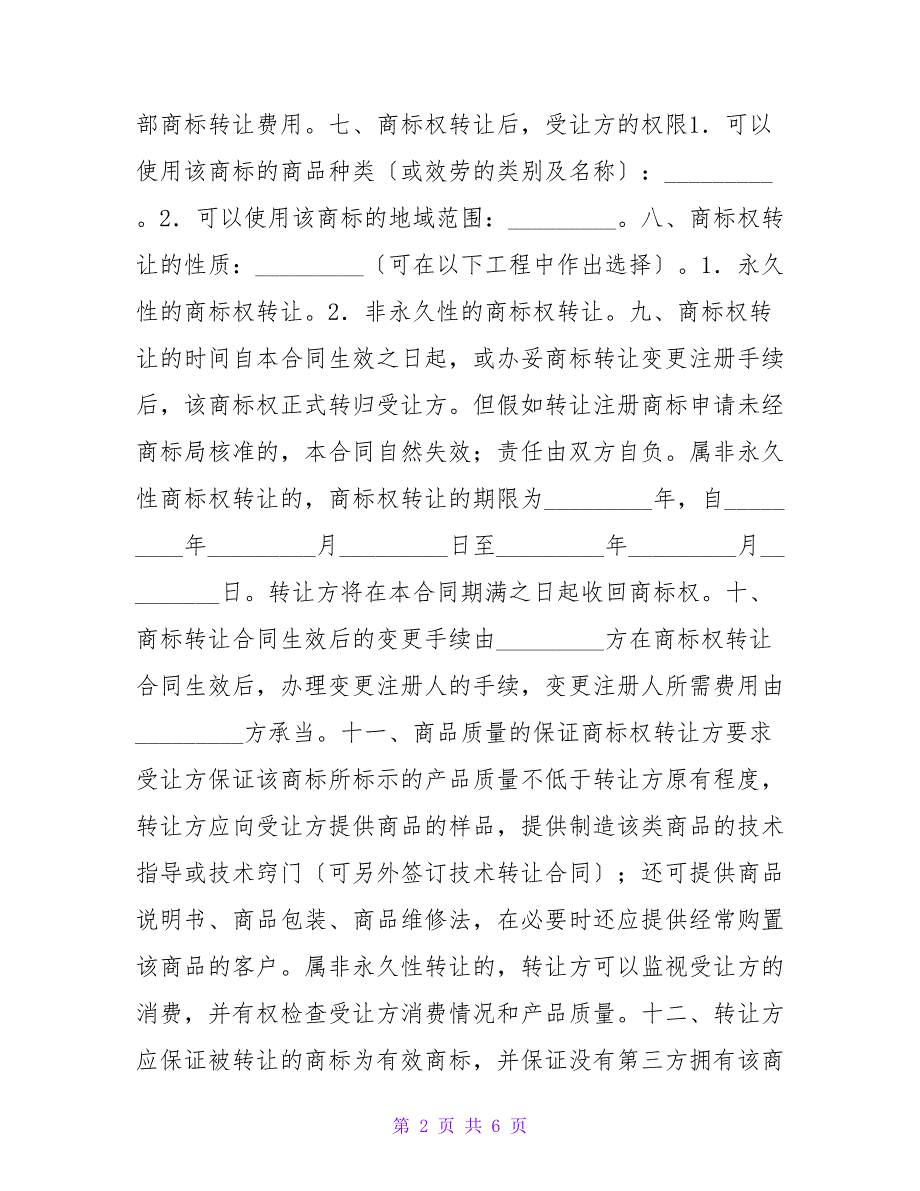 部商标转让费用。七、商标权转让后，受让方的权限1．可以
使用该商标的商品种类〔或效劳的类别及名称〕：_________
。2．可以使用该商标的地域范围：_________。八、商标权转
让的性质：_________〔可在以下工程中作出选择〕。1．永久
性的商标权转让。2．非永久性的商标权转让。九、商标权转
让的时间自本合同生效之日起，或办妥商标转让变更注册手续
后，该商标权正式转归受让方。但假如转让注册商标申请未经
商标局核准的，本合同自然失效；责任由双方自负。属非永久
性商标权转让的，商标权转让的期限为_________年，自_____
____年_________月_________日至_________年_________月__
_______日。转让方将在本合同期满之日起收回商标权。十、
商标转让合同生效后的变更手续由_________方在商标权转让
合同生效后，办理变更注册人的手续，变更注册人所需费用由
_________方承当。十一、商品质量的保证商标权转让方要求
受让方保证该商标所标示的产品质量不低于转让方原有程度，
转让方应向受让方提供商品的样品，提供制造该类商品的技术
指导或技术窍门〔可另外签订技术转让合同〕；还可提供商品
说明书、商品包装、商品维修法，在必要时还应提供经常购置
该商品的客户。属非永久性转让的，转让方可以监视受让方的
消费，并有权检查受让方消费情况和产品质量。十二、转让方
应保证被转让的商标为有效商标，并保证没有第三方拥有该商
第 2 页 共 6 页